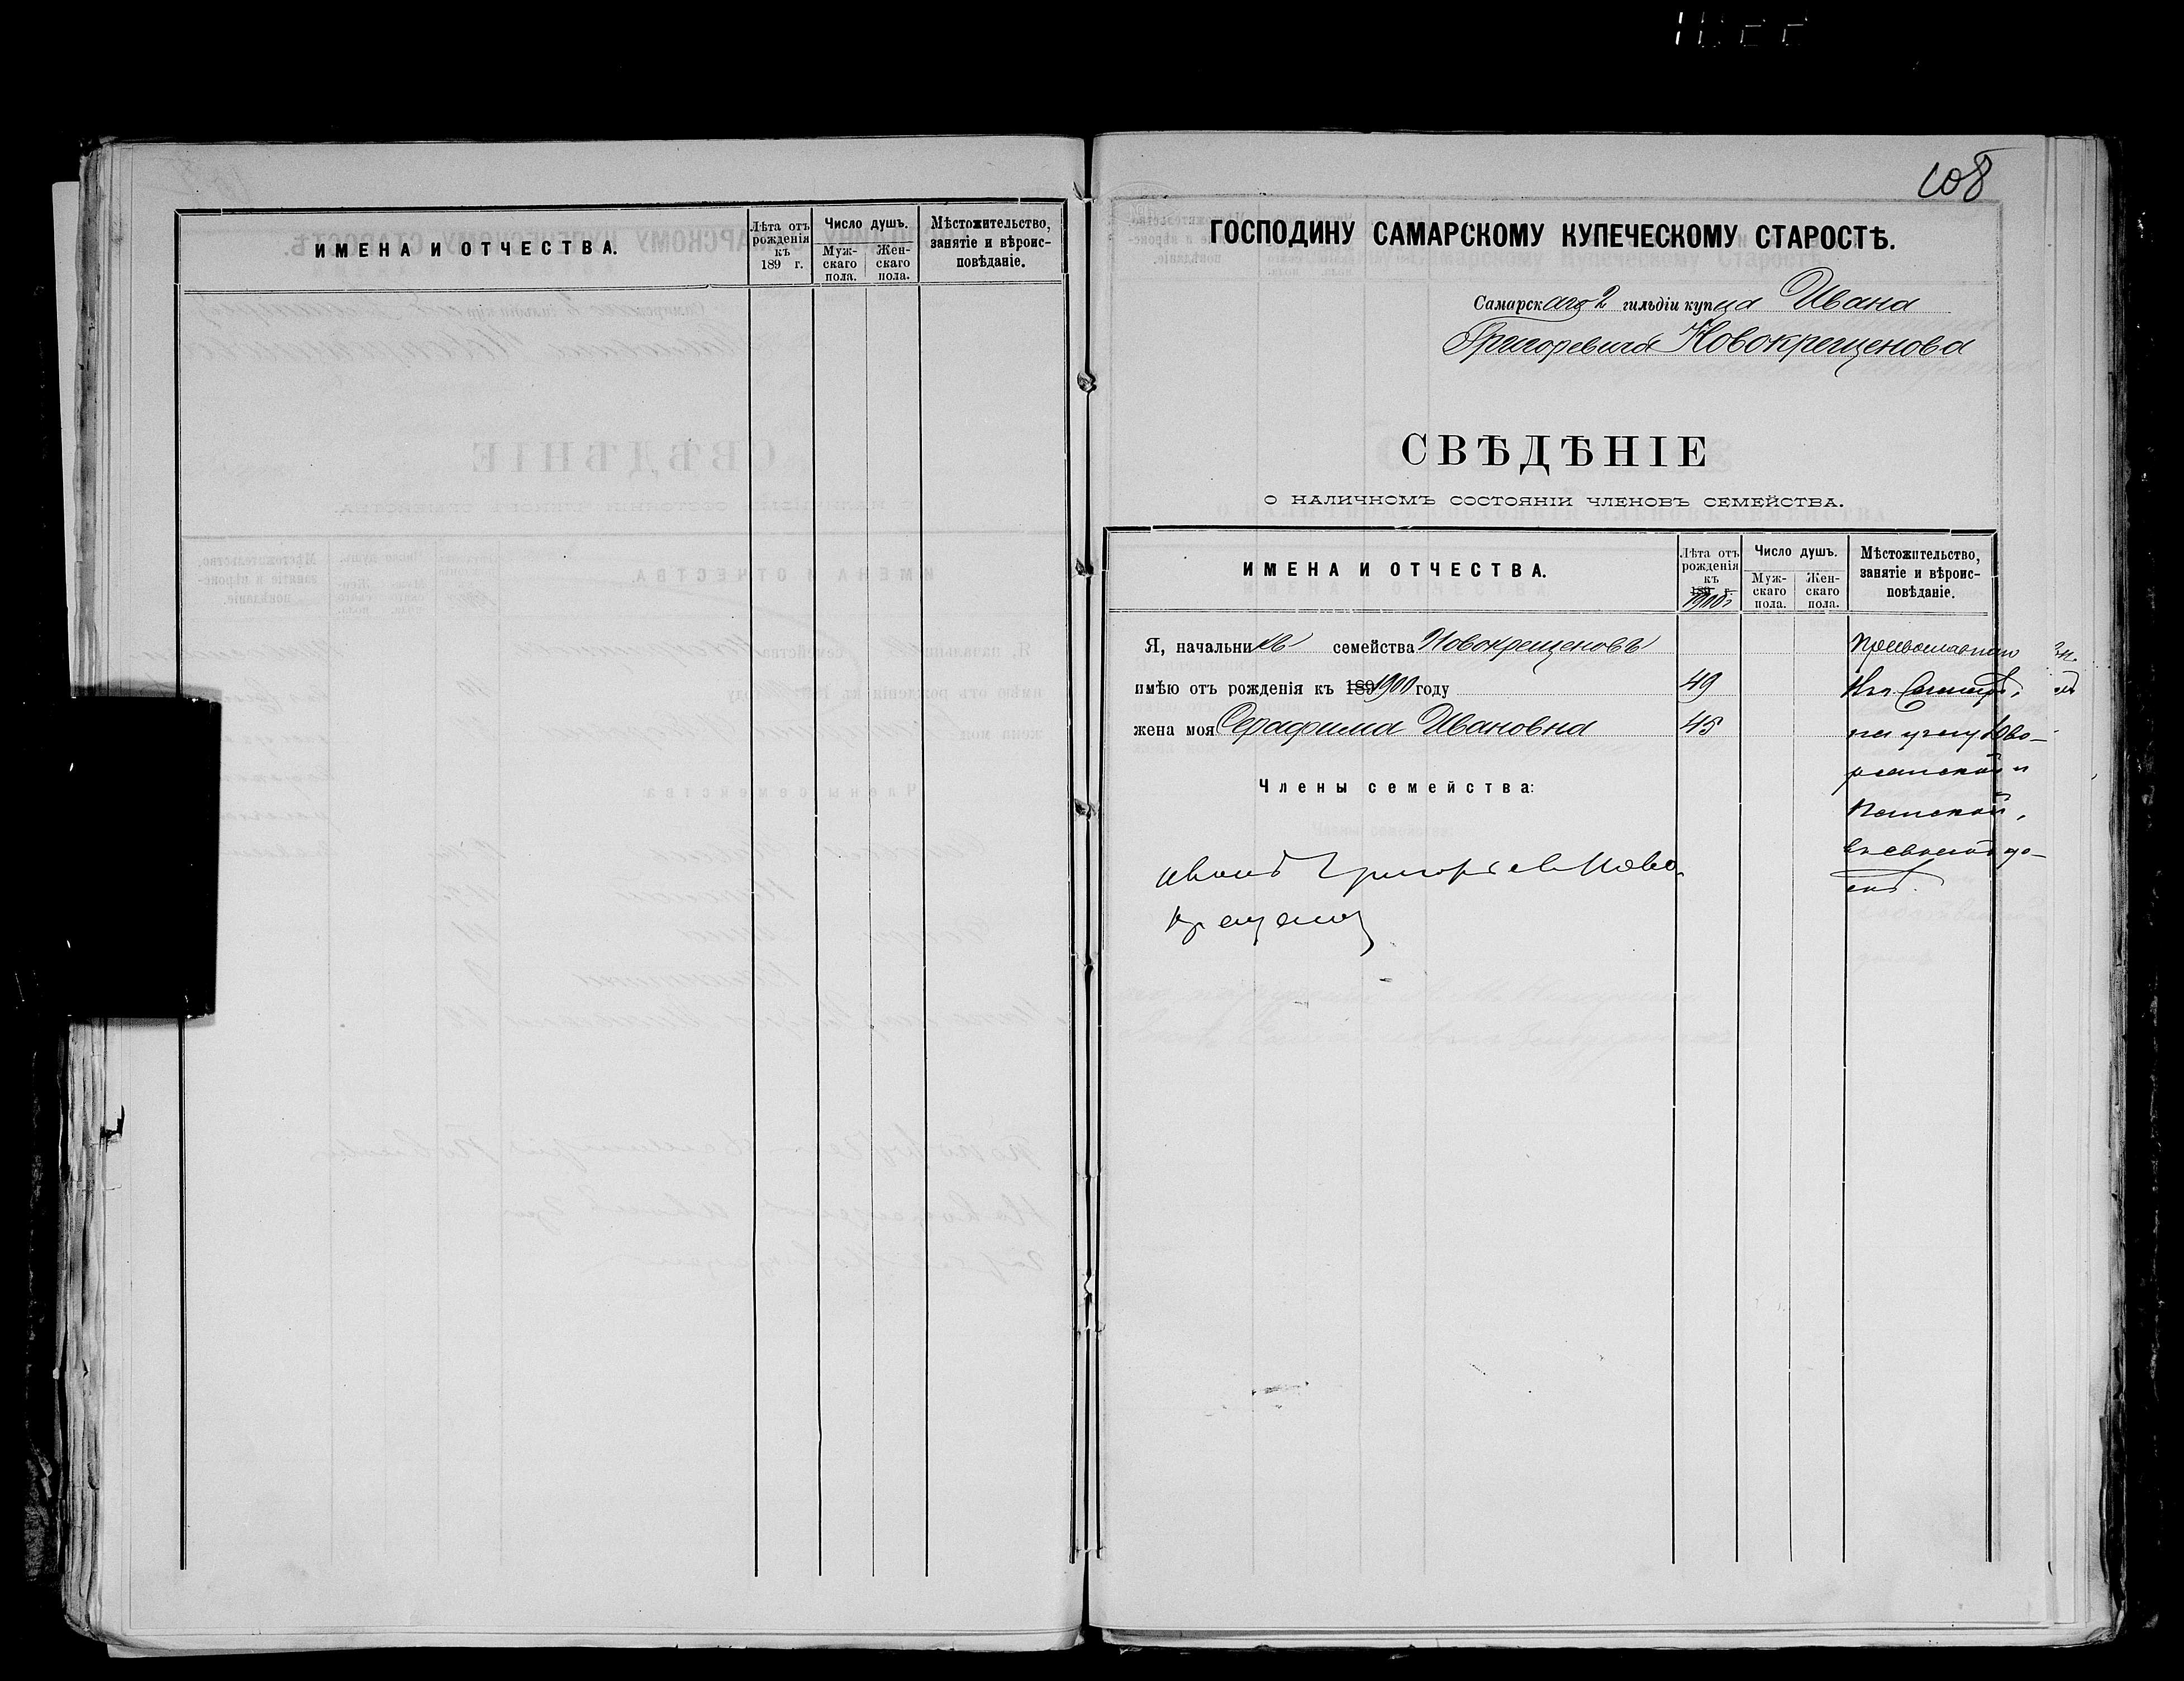 ИМЕНА И ОТЧЕСТВА.
Лѣта отъ рожденія къ 189 г.
Число душъ.
Муж-скаго пола.
Жен-скаго пола.
Мѣстожительство, занятіе и вѣроис-повѣданіе.
108
ГОСПОДИНУ САМАРСКОМУ КУПЕЧЕСКОМУ СТАРОСТѢ.
Самарскаго 2 гильдіи купца Ивана
Григоревича Новокрещенова
СВѢДѢНІЕ
О НАЛИЧНОМЪ СОСТОЯНІИ ЧЛЕНОВЪ СЕМЕЙСТВА.
ИМЕНА И ОТЧЕСТВА.
Лѣта отъ рожденія къ 189 г. 1900 г.
Число душъ.
Муж-скаго пола.
Жен-скаго пола.
Мѣстожительство, занятіе и вѣроис-повѣданіе.
Я, начальникъ семейства Новокрещеновъ
имѣю отъ рожденія къ 189 1900 году 49
жена моя Серафима Ивановна 45
Члены семейства:
Православнаго
на углу Дво-
рянской и
въ своемъ до-
мѣ.
Иванъ Григорьевъ Ново
крещенов